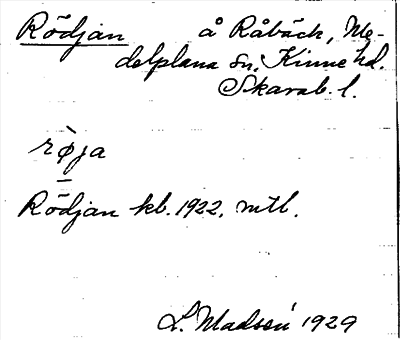 Rödjan å Råbäck, Me-
delplana sn, Kinne hd.
Skarab. l.
rø̀ja
Rödjan kb. 1922, mtl.
L. Madsén 1929